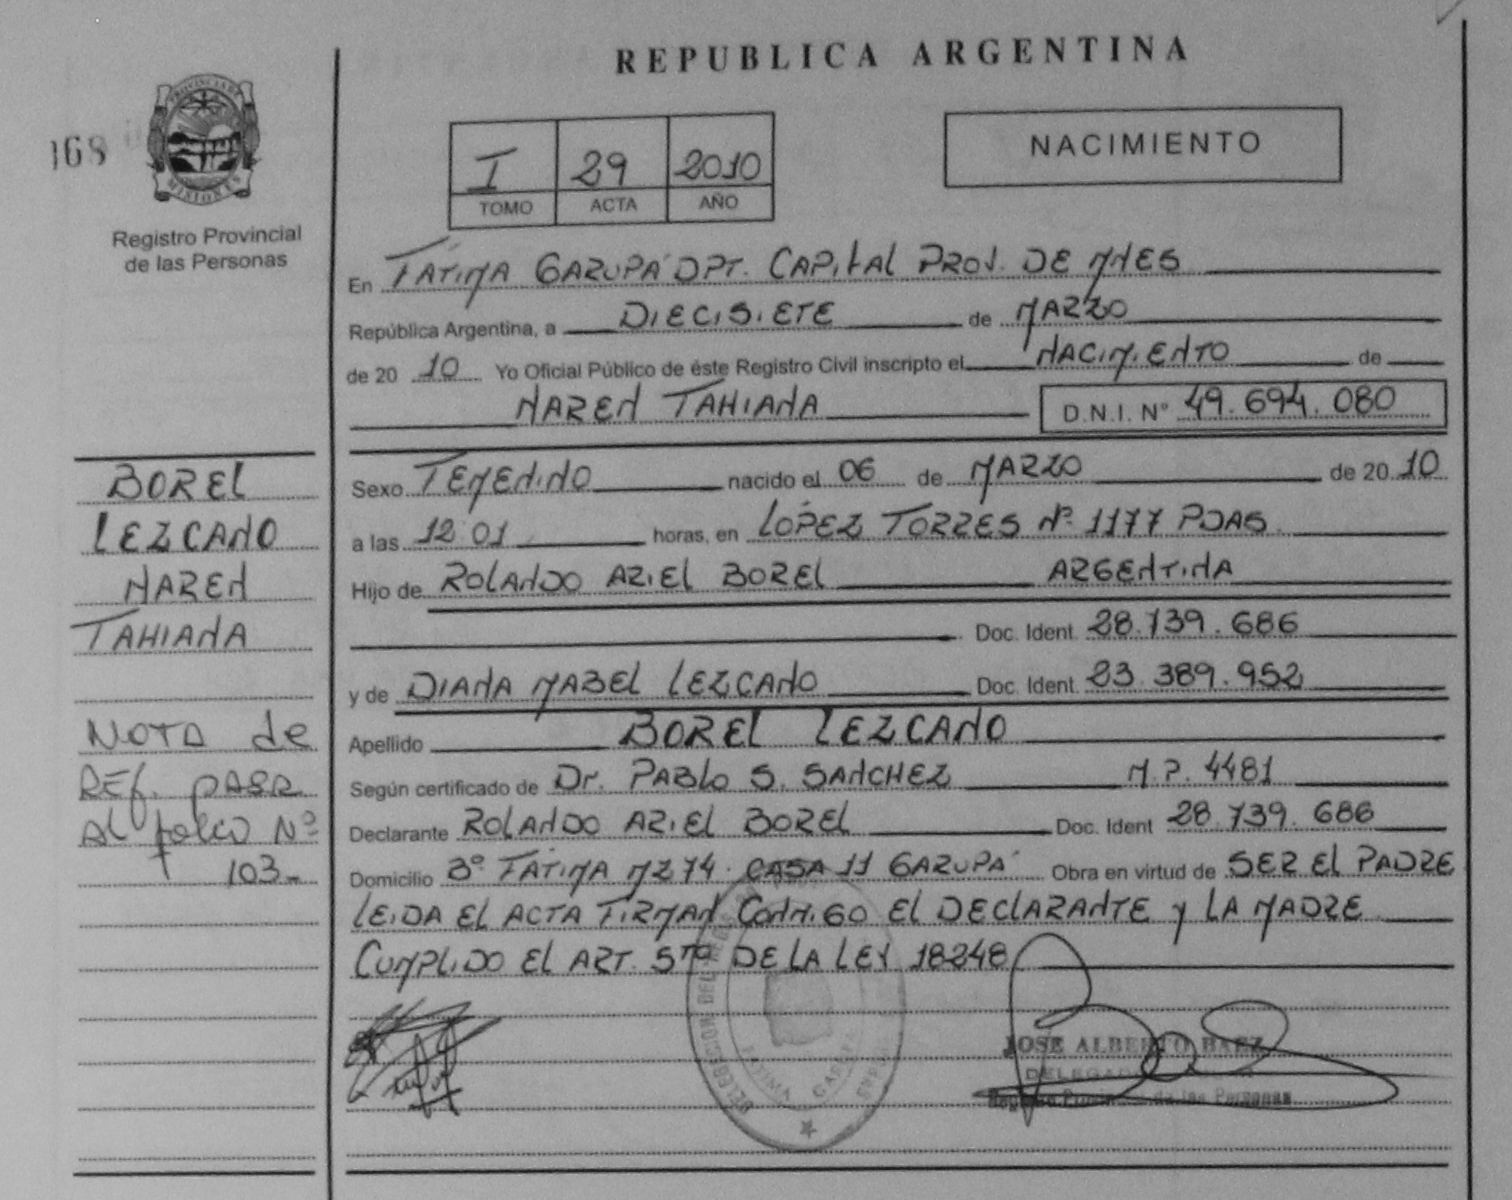 REPUBLICA ARGENTINA
168
PROVINCIA DE
MISIONES
Registro Provincial
de las Personas
I 29 2010
TOMO ACTA AÑO
NACIMIENTO
En FÁTIMA GARUPÁ DPT. CAPITAL PROV. DE MNES
República Argentina, a DIECISIETE de MARZO
de 20 10 Yo Oficial Público de éste Registro Civil inscripto el NACIMIENTO de
NAREN TAHIANA D.N.I. Nº 49.694.080
Sexo FEMENINO nacido el 06 de MARZO de 20 10
a las 12 01 horas, en LÓPEZ TORRES Nº 1177 PDAS.
Hijo de ROLANDO ARIEL BOREL ARGENTINA
Doc. Ident. 28.739.686
y de DIANA MABEL LEZCANO Doc. Ident. 23.389.952
Apellido BOREL LEZCANO
Según certificado de Dr. PABLO S. SANCHEZ M.P. 4481
Declarante ROLANDO ARIEL BOREL Doc. Ident 28.739.686
Domicilio Bº FÁTIMA MZ 74 CASA 11 GARUPÁ Obra en virtud de SER EL PADRE
LEIDA EL ACTA FIRMAN CONMIGO EL DECLARANTE Y LA MADRE
CUMPLIDO EL ART. 5TO DE LA LEY 18248
BOREL
LEZCANO
NAREN
TAHIANA
NOTA de
REF. PASA
Al folio Nº
103-
DELEGACION DEL REG
FATIMA GARUPA
JOSE ALBERTO BAEZ
DELEGADO
Registro Provincial de las Personas